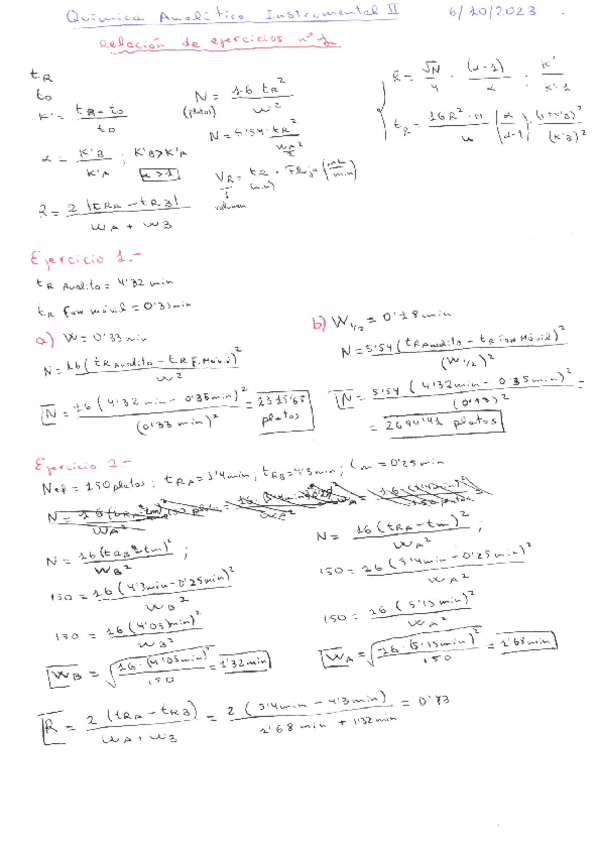 Química Analítica Instrumental II 6/10/2023
Relación de ejercicios nº 1
tR
to
K' = tR - to / to
α = K'B / K'A ; K'B > K'A α > 1
R = 2 |tRA - tRB| / WA + WB
N = 16 tR² / W²
(platos)
N = 5'54 · tR² / W½²
VR = tR · Flujo (mL/min)
(min)
volumen
R = √N / 4 · (α-1) / α · K' / K'+1
tR = 16R² · H / u (α / α-1)² (1+K')³ / (K')²
Ejercicio 1.-
tR Analito = 4'32 min
tR Fase móvil = 0'35 min
a) W = 0'33 min
N = 16 (tR Analito - tR F. Móvil)² / W²
N = 16 (4'32 min - 0'35 min)² / (0'33 min)² = 2315'65 platos
b) W1/2 = 0'18 min
N = 5'54 (tR Analito - tR Fase Móvil)² / (W1/2)²
N = 5'54 (4'32 min - 0'35 min)² / (0'18)² =
= 2694'91 platos
Ejercicio 2.-
Nef = 150 platos ; tRA = 5'4 min ; tRB = 4'3 min ; tm = 0'25 min
N = 16 (tRB - tm)² / WB² ;
150 = 16 (4'3 min - 0'25 min)² / WB²
150 = 16 (4'05 min)² / WB²
WB = √16 · (4'05 min)² / 150 = 1'32 min
N = 16 (tRA - tm)² / WA² ;
150 = 16 (5'4 min - 0'25 min)² / WA²
150 = 16 (5'15 min)² / WA²
WA = √16 · (5'15 min)² / 150 = 1'68 min
R = 2 (tRA - tRB) / WA + WB = 2 (5'4 min - 4'3 min) / 1'68 min + 1'32 min = 0'73